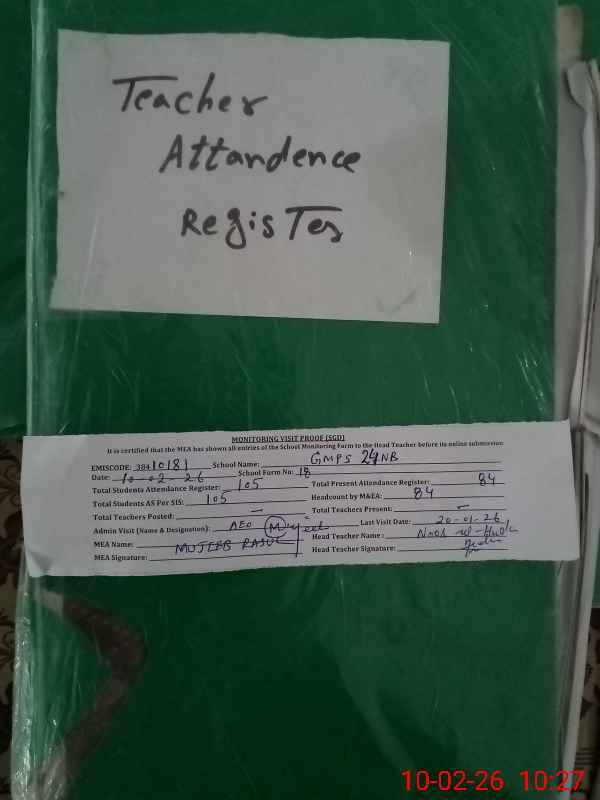 Teacher
Attandence
RegisTer
MONITORING VISIT PROOF (SGD)
It is certified that the MEA has shown all entries of the School Monitoring Form to the Head Teacher before its online submission
EMISCODE: 38410181 School Name: GMPS 24NB
Date: 10-02-26 School Form No: 18
Total Students Attendance Register: 105 Total Present Attendance Register: 84
Total Students AS Per SIS: 105 Headcount by M&EA: 84
Total Teachers Posted: — Total Teachers Present: —
Admin Visit (Name & Designation): AEO Last Visit Date: 20-01-26
MEA Name: MUJEEB RASUL Head Teacher Name: Noor ul-Huda
MEA Signature: Head Teacher Signature:
10-02-26 10:27